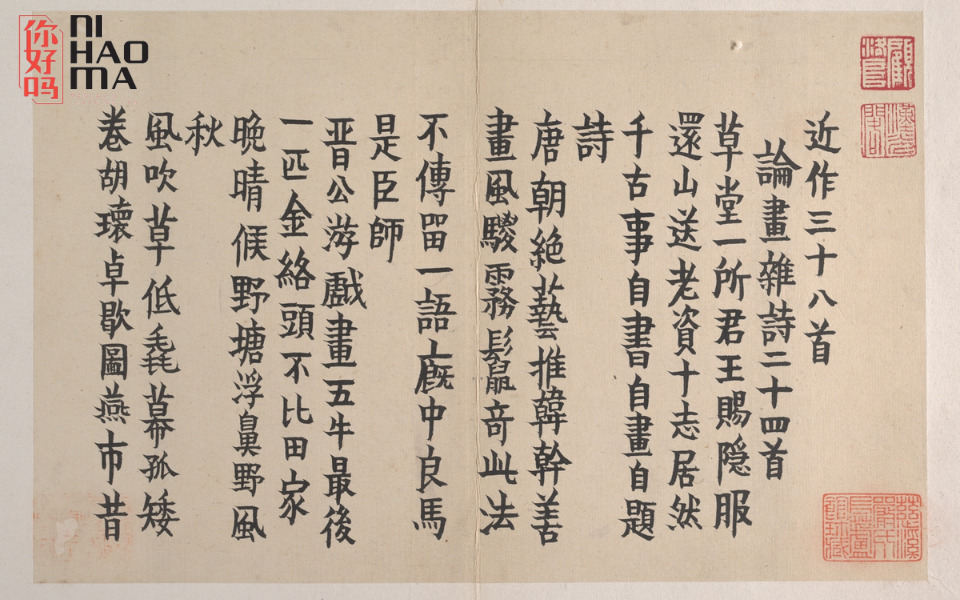 你好吗
NI
HAO
MA
顧洛阜
漢光閣
近作三十八首
論畫雜詩二十四首
草堂一所君王賜隐服
還山送老資十志居然
千古事自書自畫自題
詩
唐朝絶藝推韓幹善
畫風騣霧鬛竒此法
不傳留一語廐中良馬
是臣師
晋公游戲畫五牛最後
一匹金絡頭不比田家
晚晴候野塘浮鼻野風
秋
風吹草低毳幕孤矮
卷胡瓌卓歇圖燕市昔